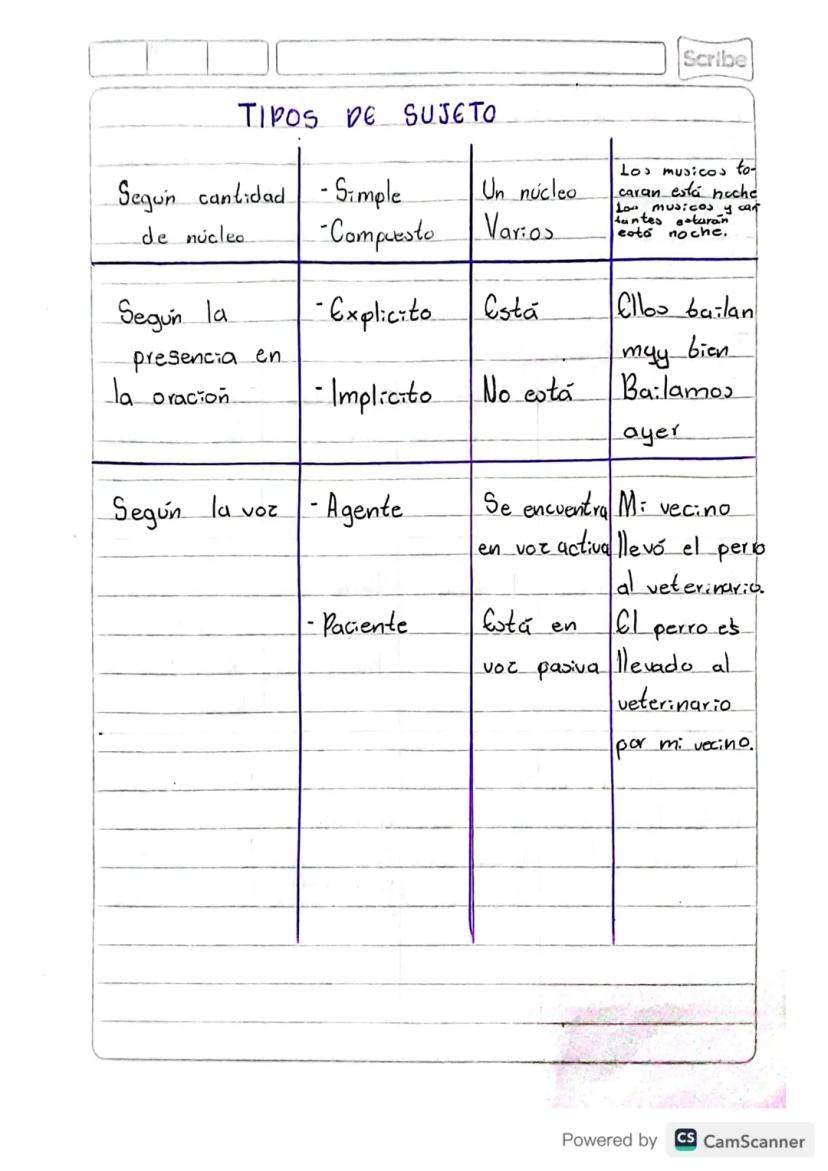 Scribe
TIPOS DE SUJETO
Según cantidad
de núcleo
- Simple
- Compuesto
Un núcleo
Varios
Los musicos to-
caran está noche
Los musicos y can
tantes estarán
está noche.
Según la
presencia en
la oración
- Explicito
- Implicito
Está
No está
Ellos bailan
muy bien
Bailamos
ayer
Según la voz
- Agente
- Paciente
Se encuentra
en voz activa
Está en
voz pasiva
Mi vecino
llevó el perro
al veterinario.
El perro es
llevado al
veterinario
por mi vecino.
Powered by CS CamScanner